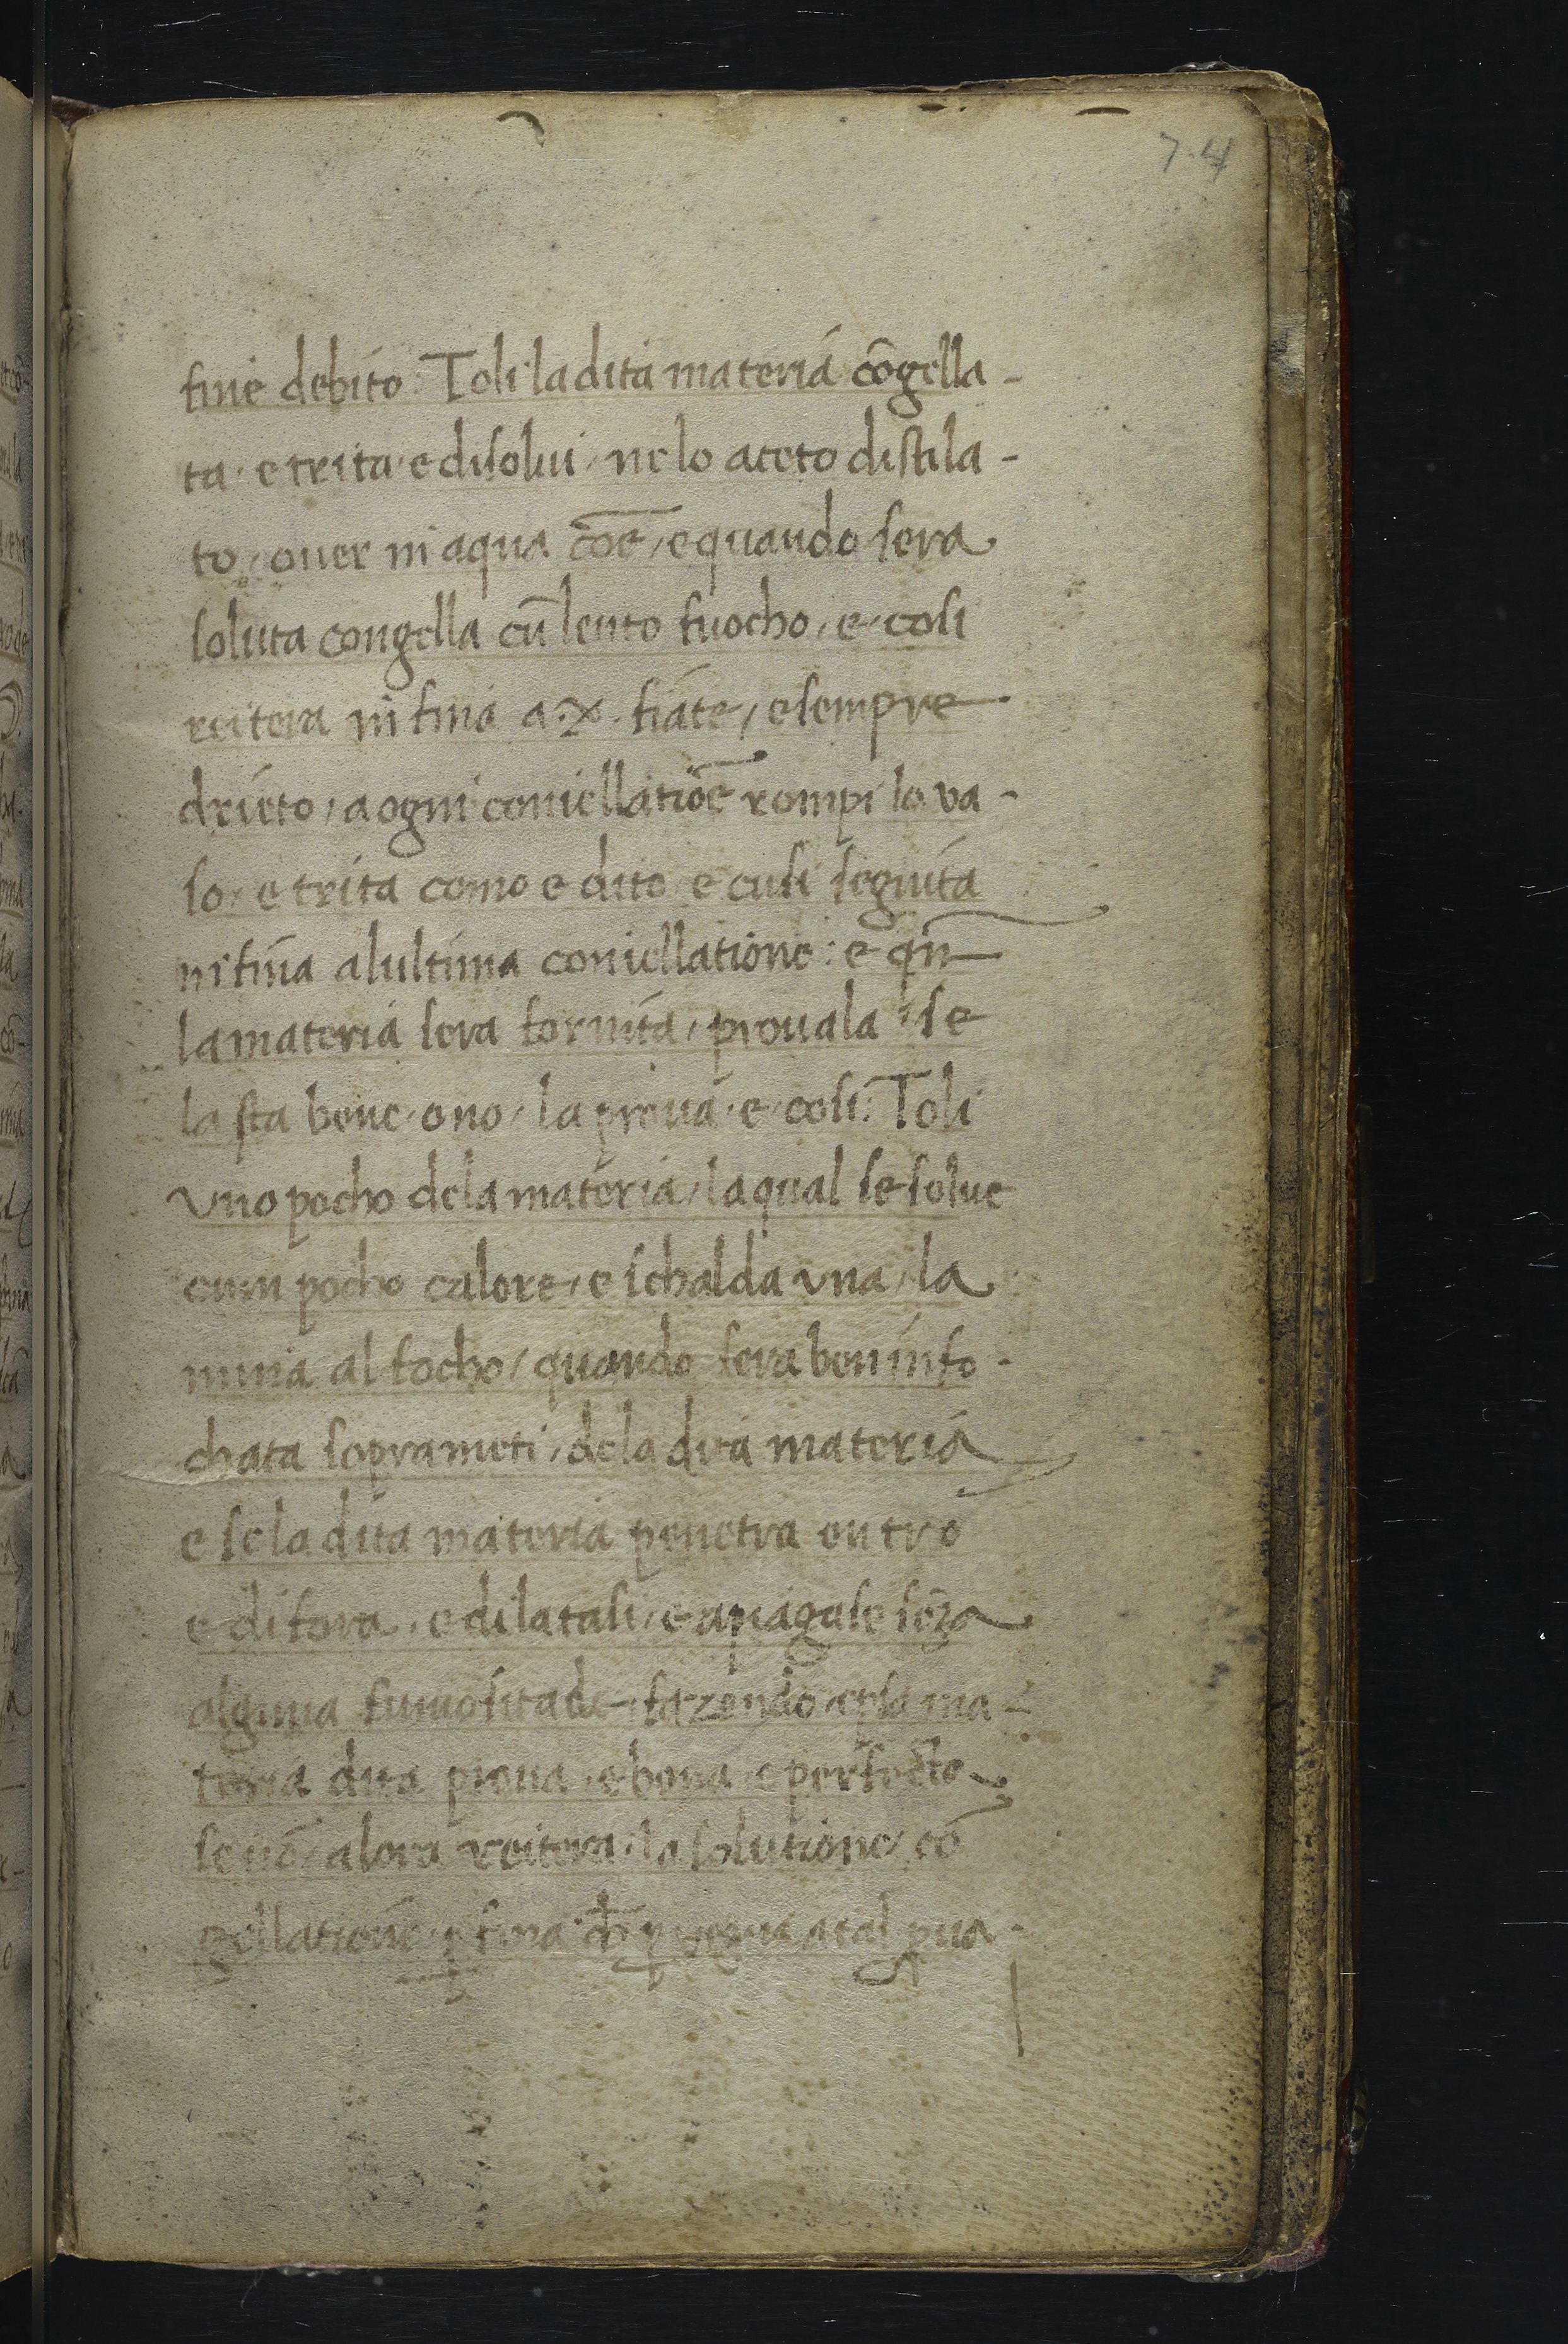 7.4
fine debito: Toli la dita materia cōgella-
ta · e trita · e disolui / ne lo aceto distila-
to / ouer in aqua cōe / e quando sera
soluta congella cū lento fuocho / e cosi
reitera in fina a · x · fiate / e sempre
drieto / a ogni coniellatiōe rompi lo va-
so / e trita como e dito e cusi seguita
in fina alultima coniellatione : e qñ
la materia sera fornita / prouala / se
la sta bene / o no / la proua · e · cosi: Toli
vno pocho dela materia / la qual se solue
cum pocho calore / e schalda vna / la
mina al focho / quando sera ben info-
chata sopra meti / dela dita materia
e se la dita materia penetra entro
e di fora / e dilatasi / e apiagase sēza
alguna fumositade / fazendo epsa ma-
teria dita proua / e bona e perfecta
se nō / alora reitera / la solutione / cō
gellatione fina ch̄ peruegni a tal pua